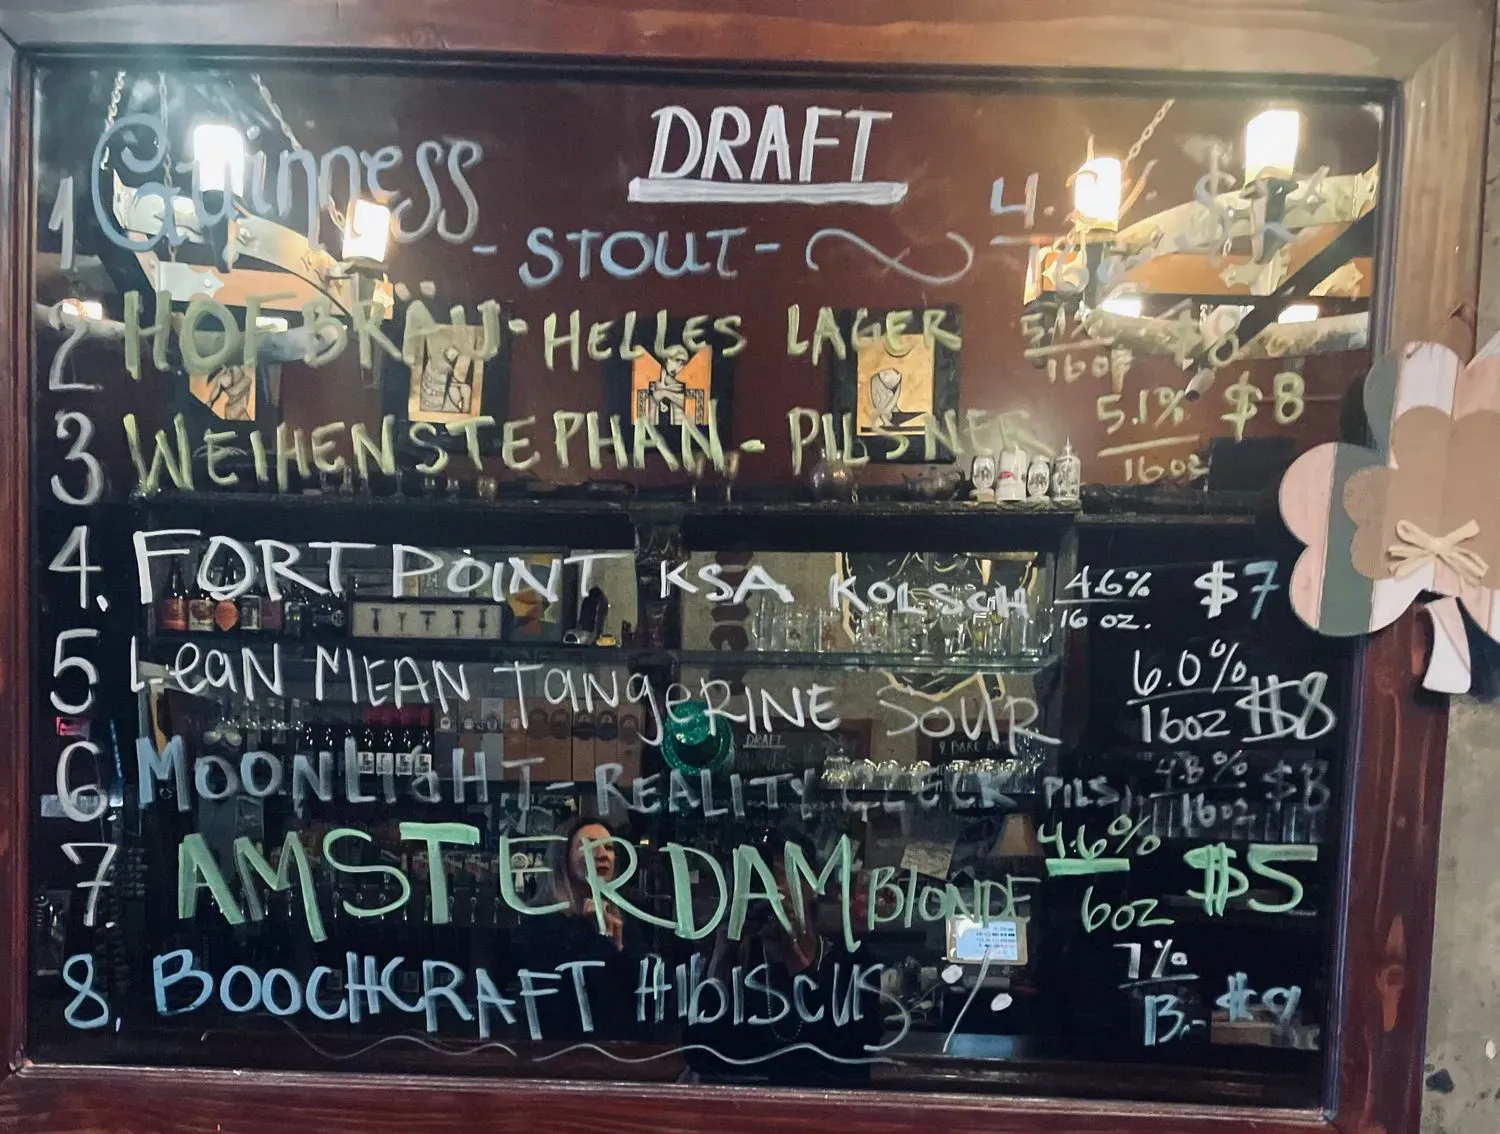 DRAFT
1 Guinness - STOUT - 4.
2 HOFBRÄU - HELLES LAGER 5.1% 16oz $8
3 WEIHENSTEPHAN - PILSNER 5.1% 16oz $8
4. FORT POINT KSA KOLSCH 4.6% 16 oz. $7
5 LeaN MEAN TaNgeRINE SOUR 6.0% 16oz $8
6. MOONLIGHT - REALITY CZECK PILS. 4.8% 16oz $8
7. AMSTERDAM BLONDE 4.6% 6oz $5
8. BOOCHCRAFT HIbISCUS 7% B.- $9